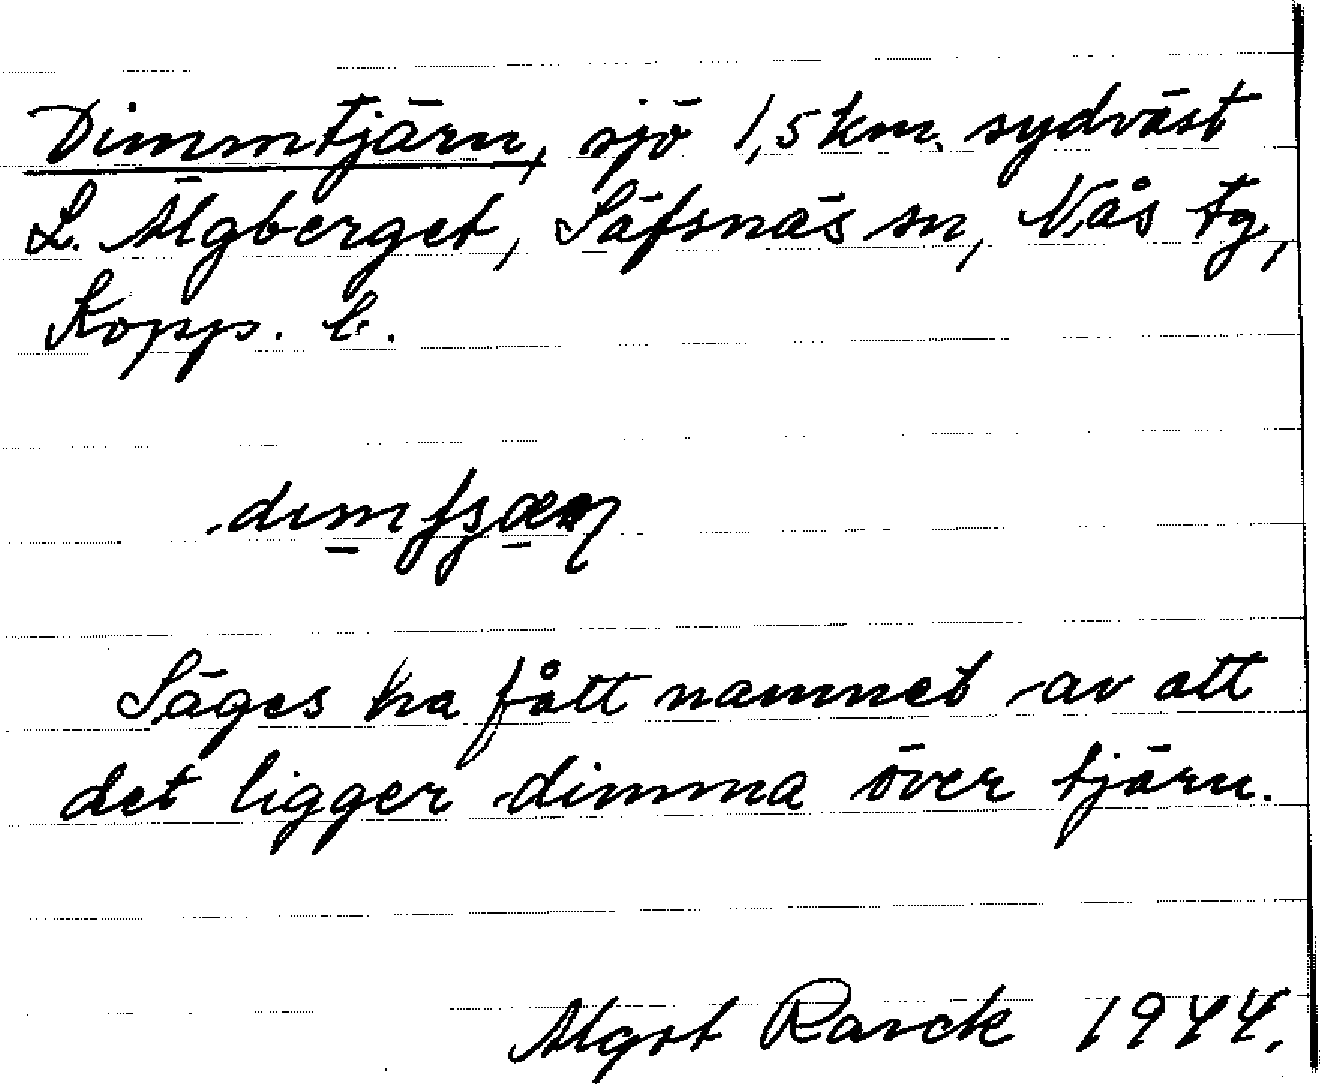 Dimmtjärn, sjö 1,5 km. sydväst
L. Älgberget, Säfsnäs sn, Nås tg,
Kopp. l.
Säges ha fått namnet av att
det ligger dimma över tjärn.
Algot Rarck 1944.